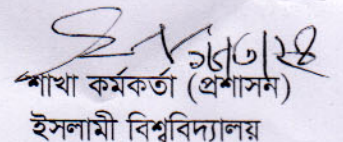 শাখা কর্মকর্তা (প্রশাসন)
ইসলামী বিশ্ববিদ্যালয়